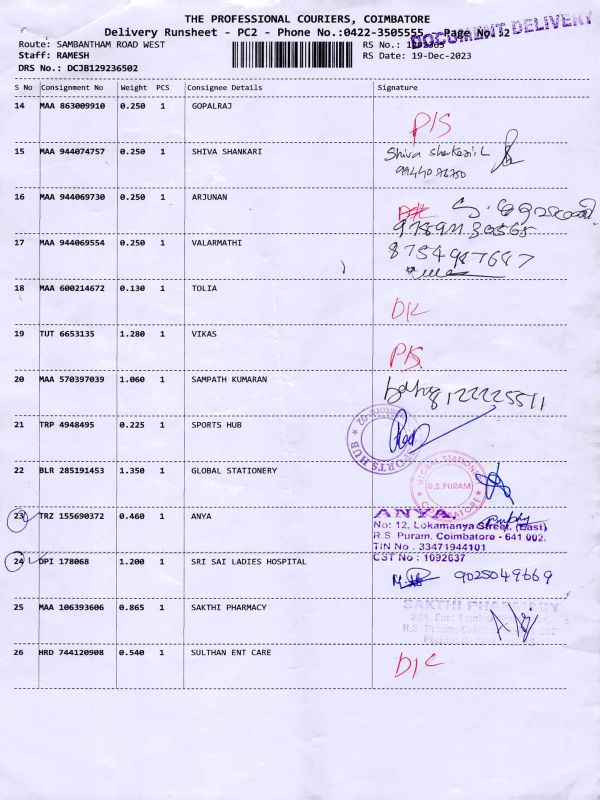 THE PROFESSIONAL COURIERS, COIMBATORE
DOCUMENT DELIVERY
Delivery Runsheet - PC2 - Phone No.:0422-3505555 Page No.12
Route: SAMBANTHAM ROAD WEST RS No.:
Staff: RAMESH RS Date: 19-Dec-2023
DRS No.: DCJB129236502
S No Consignment No Weight PCS Consignee Details Signature
14 MAA 863009910 0.250 1 GOPALRAJ P/S
15 MAA 944074757 0.250 1 SHIVA SHANKARI Shiva Shankari.L
16 MAA 944069730 0.250 1 ARJUNAN
17 MAA 944069554 0.250 1 VALARMATHI 8754987687
18 MAA 600214672 0.130 1 TOLIA D/L
19 TUT 6653135 1.280 1 VIKAS P/S
20 MAA 570397039 1.060 1 SAMPATH KUMARAN
21 TRP 4948495 0.225 1 SPORTS HUB SPORTS HUB
22 BLR 285191453 1.350 1 GLOBAL STATIONERY GLOBAL STATIONERY R.S.PURAM COIMBATORE
23 TRZ 155690372 0.460 1 ANYA ANYA,
No: 12, Lokamanya Street, (East)
R.S. Puram, Coimbatore - 641 002.
TIN No : 33471944101
CST No : 1092637
24 DPI 178068 1.200 1 SRI SAI LADIES HOSPITAL 9025049669
25 MAA 106393606 0.865 1 SAKTHI PHARMACY SAKTHI PHARMACY
26 HRD 744120908 0.540 1 SULTHAN ENT CARE D/L